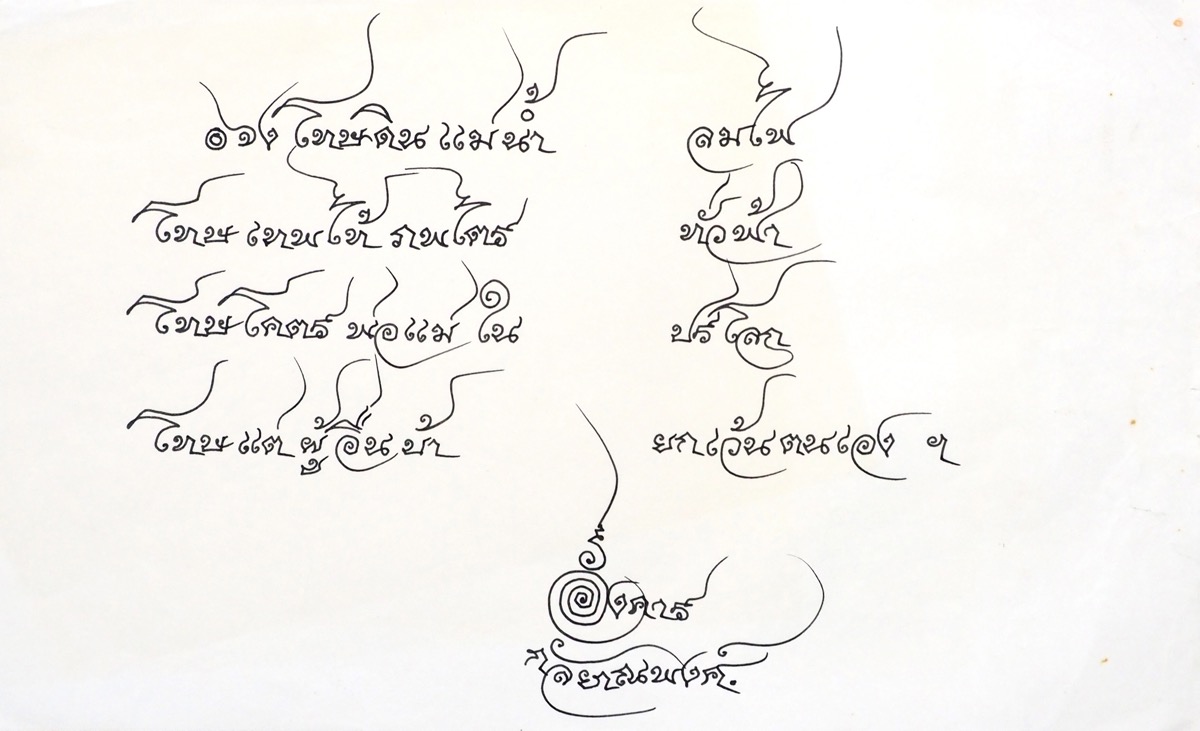 ๏ โทษดิน แม่น้ำ ลมไฟ
โทษ เทพไท้ ราพไตร ทั่วฟ้า
โทษโคตร พ่อแม่ ใน ปรโลก
โทษ แต่ ผู้อื่น บ้า ยกเว้นตนเอง ฯ
อังคาร
กัลยาณพงศ์.